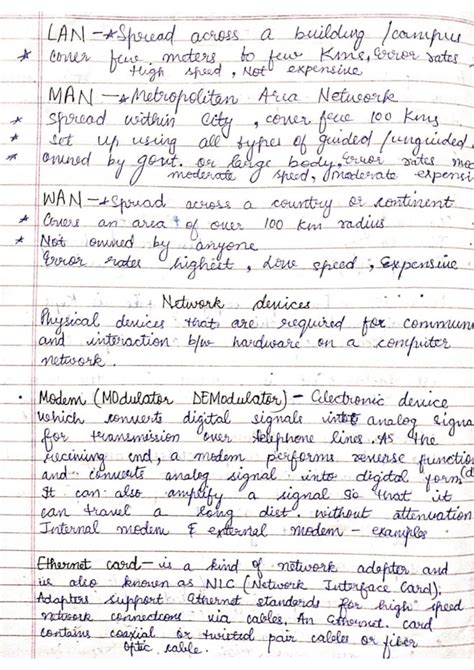 LAN - * Spread across a building /campus
* cover few meters to few Kms, Error rates
High speed, Not expensive
MAN - * Metropolitan Area Network
* Spread within city, cover few 100 Kms
* set up using all types of guided /unguided
* owned by govt. or large body, Error rates mo
moderate speed, moderate expensi
WAN - * Spread across a country or continent
* Covers an area of over 100 km radius
* Not owned by anyone
Error rates highest, Low speed, Expensive
Network devices
Physical devices that are required for commun
and interaction b/w hardware on a computer
network.
• Modem (MOdulator DEModulator) - Electronic device
which converts digital signals into analog signa
for transmission over telephone lines. AS the
recieving end, a modem performs reverse function
and converts analog signal into digital form (d
It can also amplify a signal so that it
can travel a long dist without attenuation
Internal modem & external modem - examples
Ethernet card - is a kind of network adapter and
is also known as NIC (Network Interface Card).
Adapters support Ethernet standards for high speed
network connections via cables. An Ethernet card
contains coaxial or twisted pair cables or fiber
optic cable.